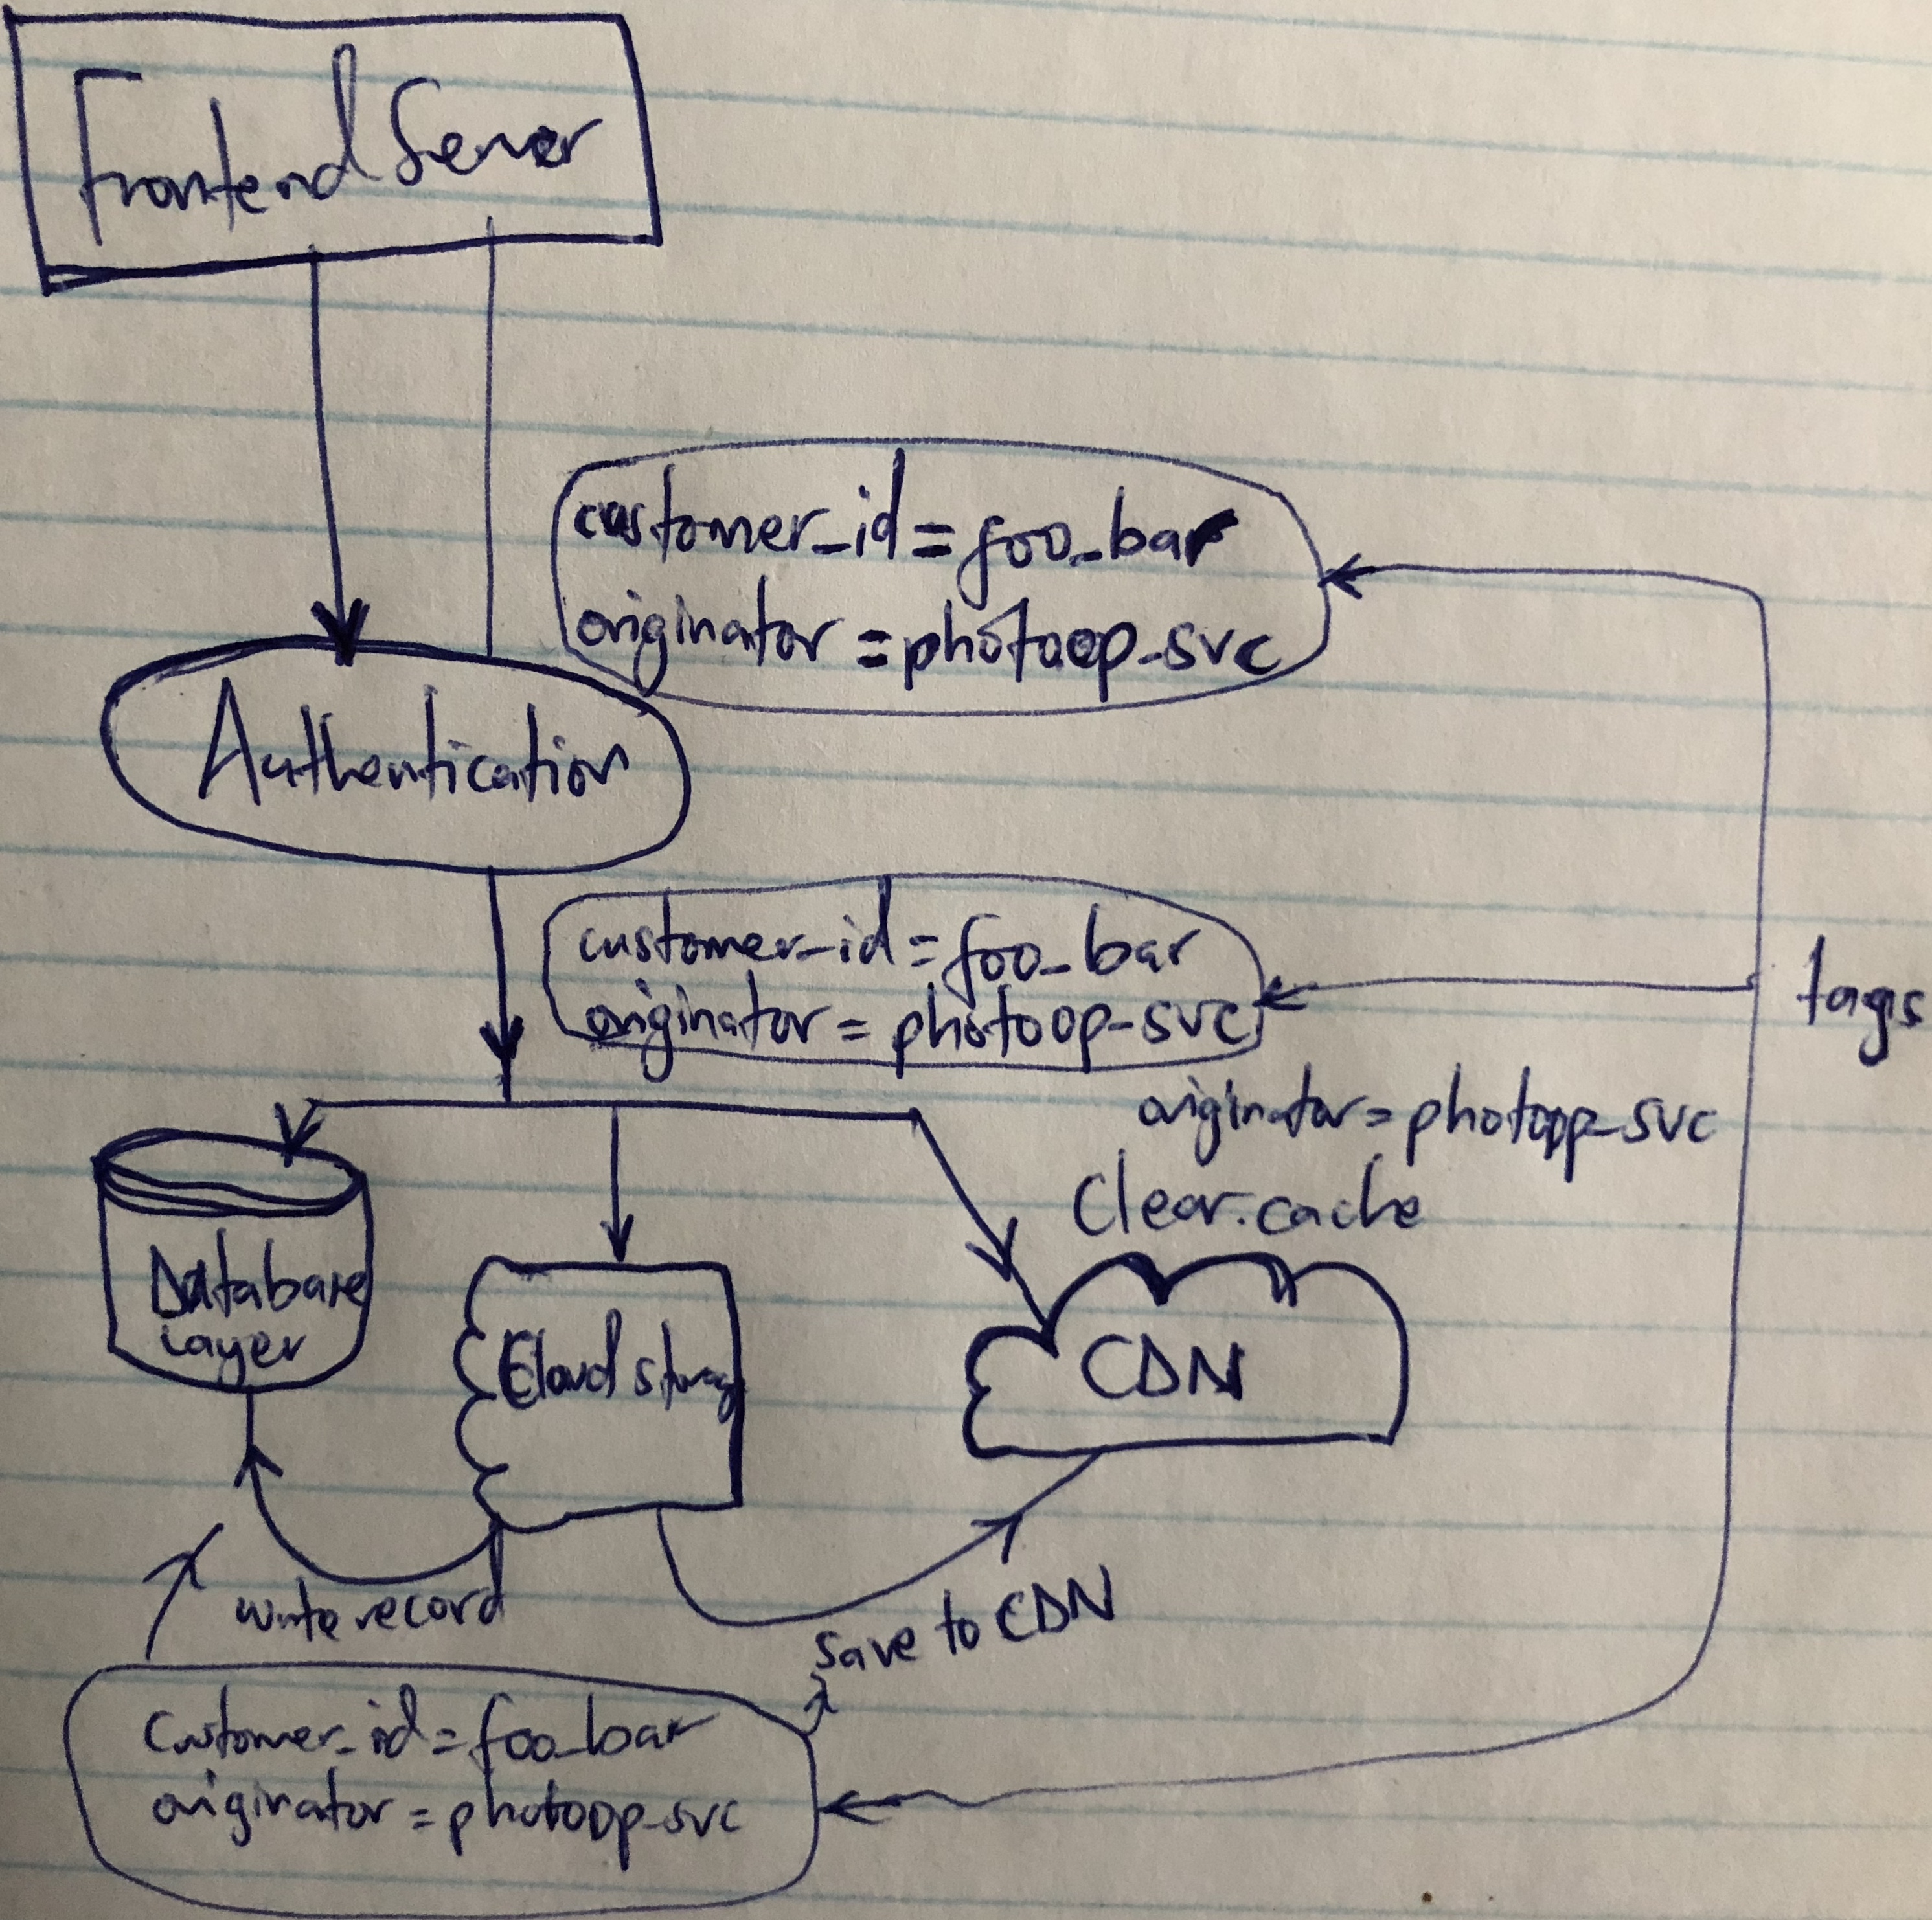 Frontend Server
customer_id = foo_bar
originator = photoop_svc
Authentication
customer_id = foo_bar
originator = photoop_svc
tags
originator = photoop_svc
Clear.cache
Database
Layer
Cloud storag
CDN
write record
save to CDN
customer_id = foo_bar
originator = photoop_svc